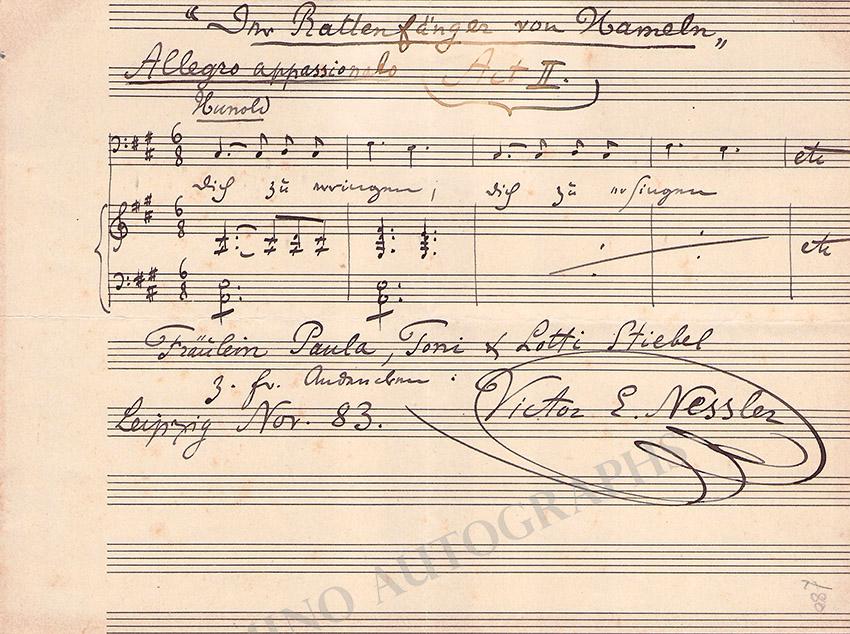 "Der Rattenfänger von Hameln„
Allegro appassionato Act II.
Hunold
6 8 etc
dich zu erringen; dich zu ersingen
6 8 etc
6 8
Fräulein Paula, Toni & Lotti Stiebel
z. fr. Andenken:
Victor E. Nessler
Leipzig Nov. 83.
AUTOGRAPHS